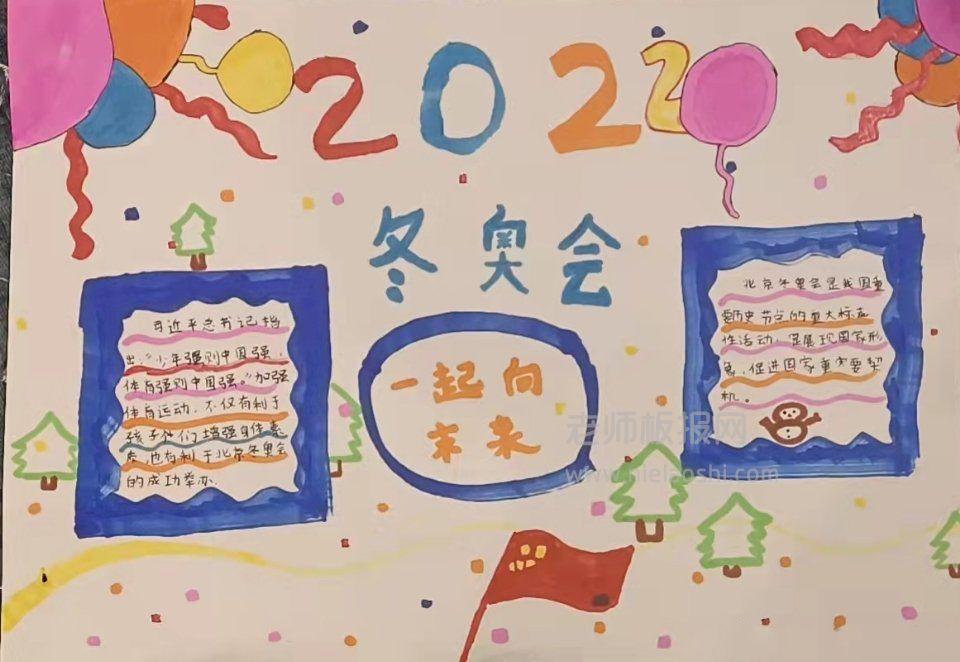 2022
冬奥会
一起向
未来
习近平总书记指
出:“少年强则中国强,
体育强则中国强。”加强
体育运动,不仅有利于
孩子他们增强身体素
质,也有利于北京冬奥会
的成功举办.
北京冬奥会是我国重
要历史节点的重大标志
性活动,是展现国家形
象,促进国家重要契
机。
老师板报网